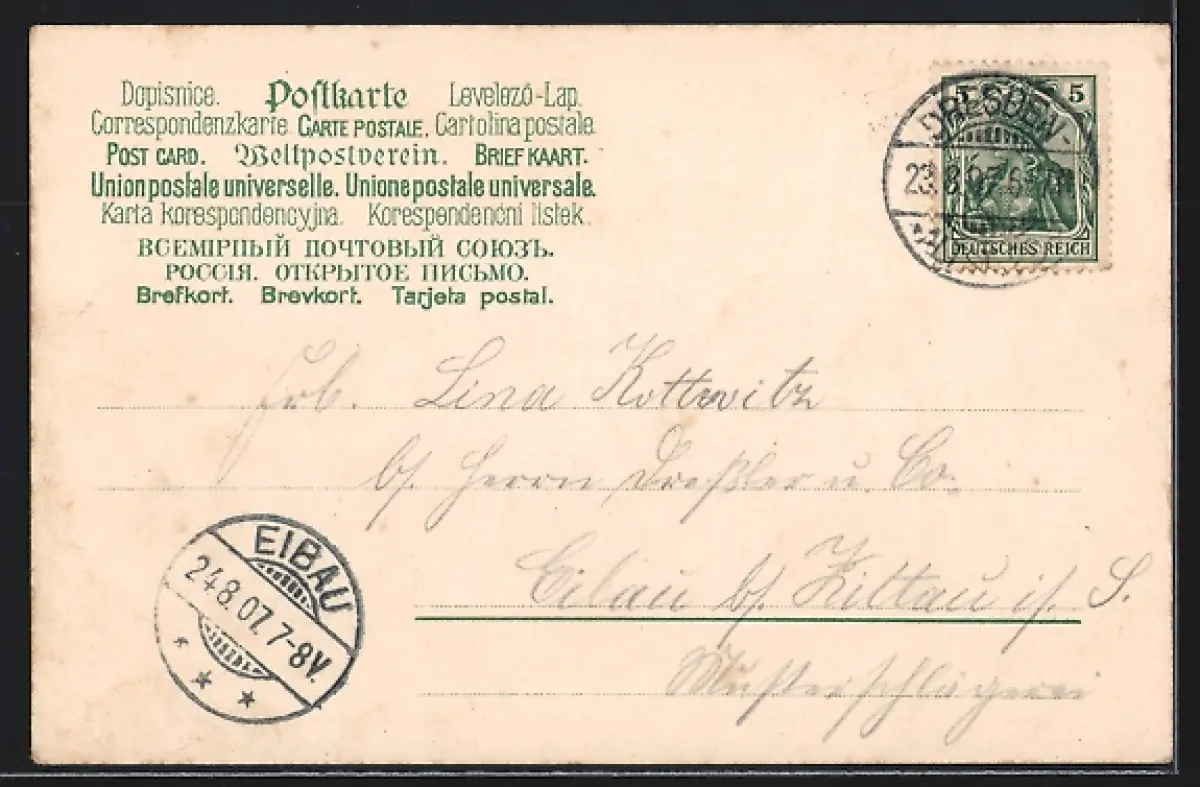 Dopisnice. Postkarte Levelező-Lap.
Correspondenzkarte. CARTE POSTALE. Cartolina postale.
POST CARD. Weltpostverein. BRIEFKAART.
Union postale universelle. Unione postale universale.
Karta korespondencyjna. Korespondenční lístek.
ВСЕМІРНЫЙ ПОЧТОВЫЙ СОЮЗЪ.
РОССІЯ. ОТКРЫТОЕ ПИСЬМО.
Brefkort. Brevkort. Tarjeta postal.
5 5
DEUTSCHES REICH
DRESDEN-
23.8.07.
Lina Kottwitz
b/. Herrn Dreßler u. Co.
Eibau b/. Zittau i/. S.
Musterschlägerei
EIBAU
24.8.07. 7-8V.